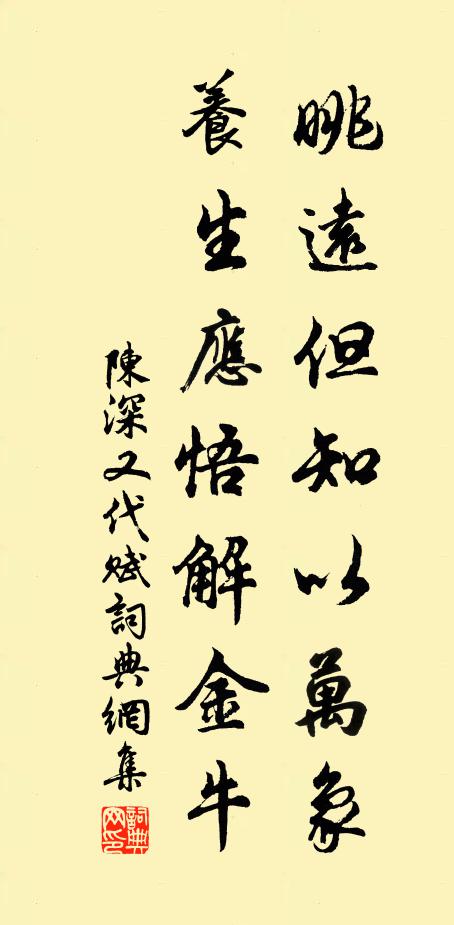 眺遠但知以萬象
養生應悟解金牛
陳深又代賦詞典網集
詞典网印